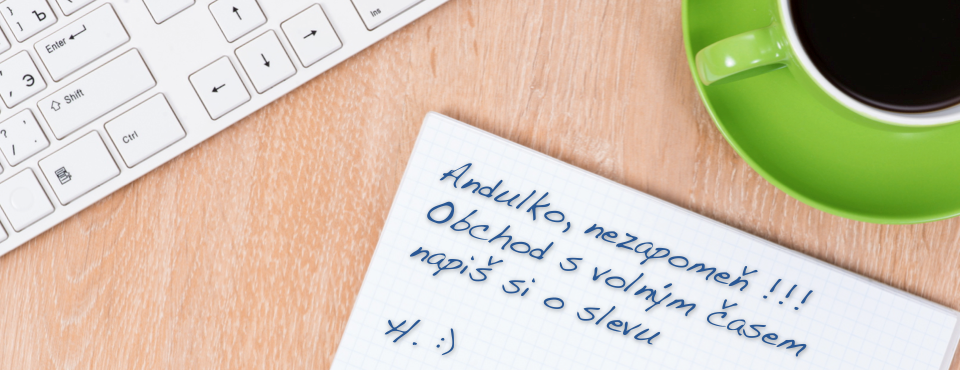 Ъ
Enter
Э
Shift
Ctrl
Ins
Andulko, nezapomeň !!!
Obchod s volným časem
napiš si o slevu
H. :)